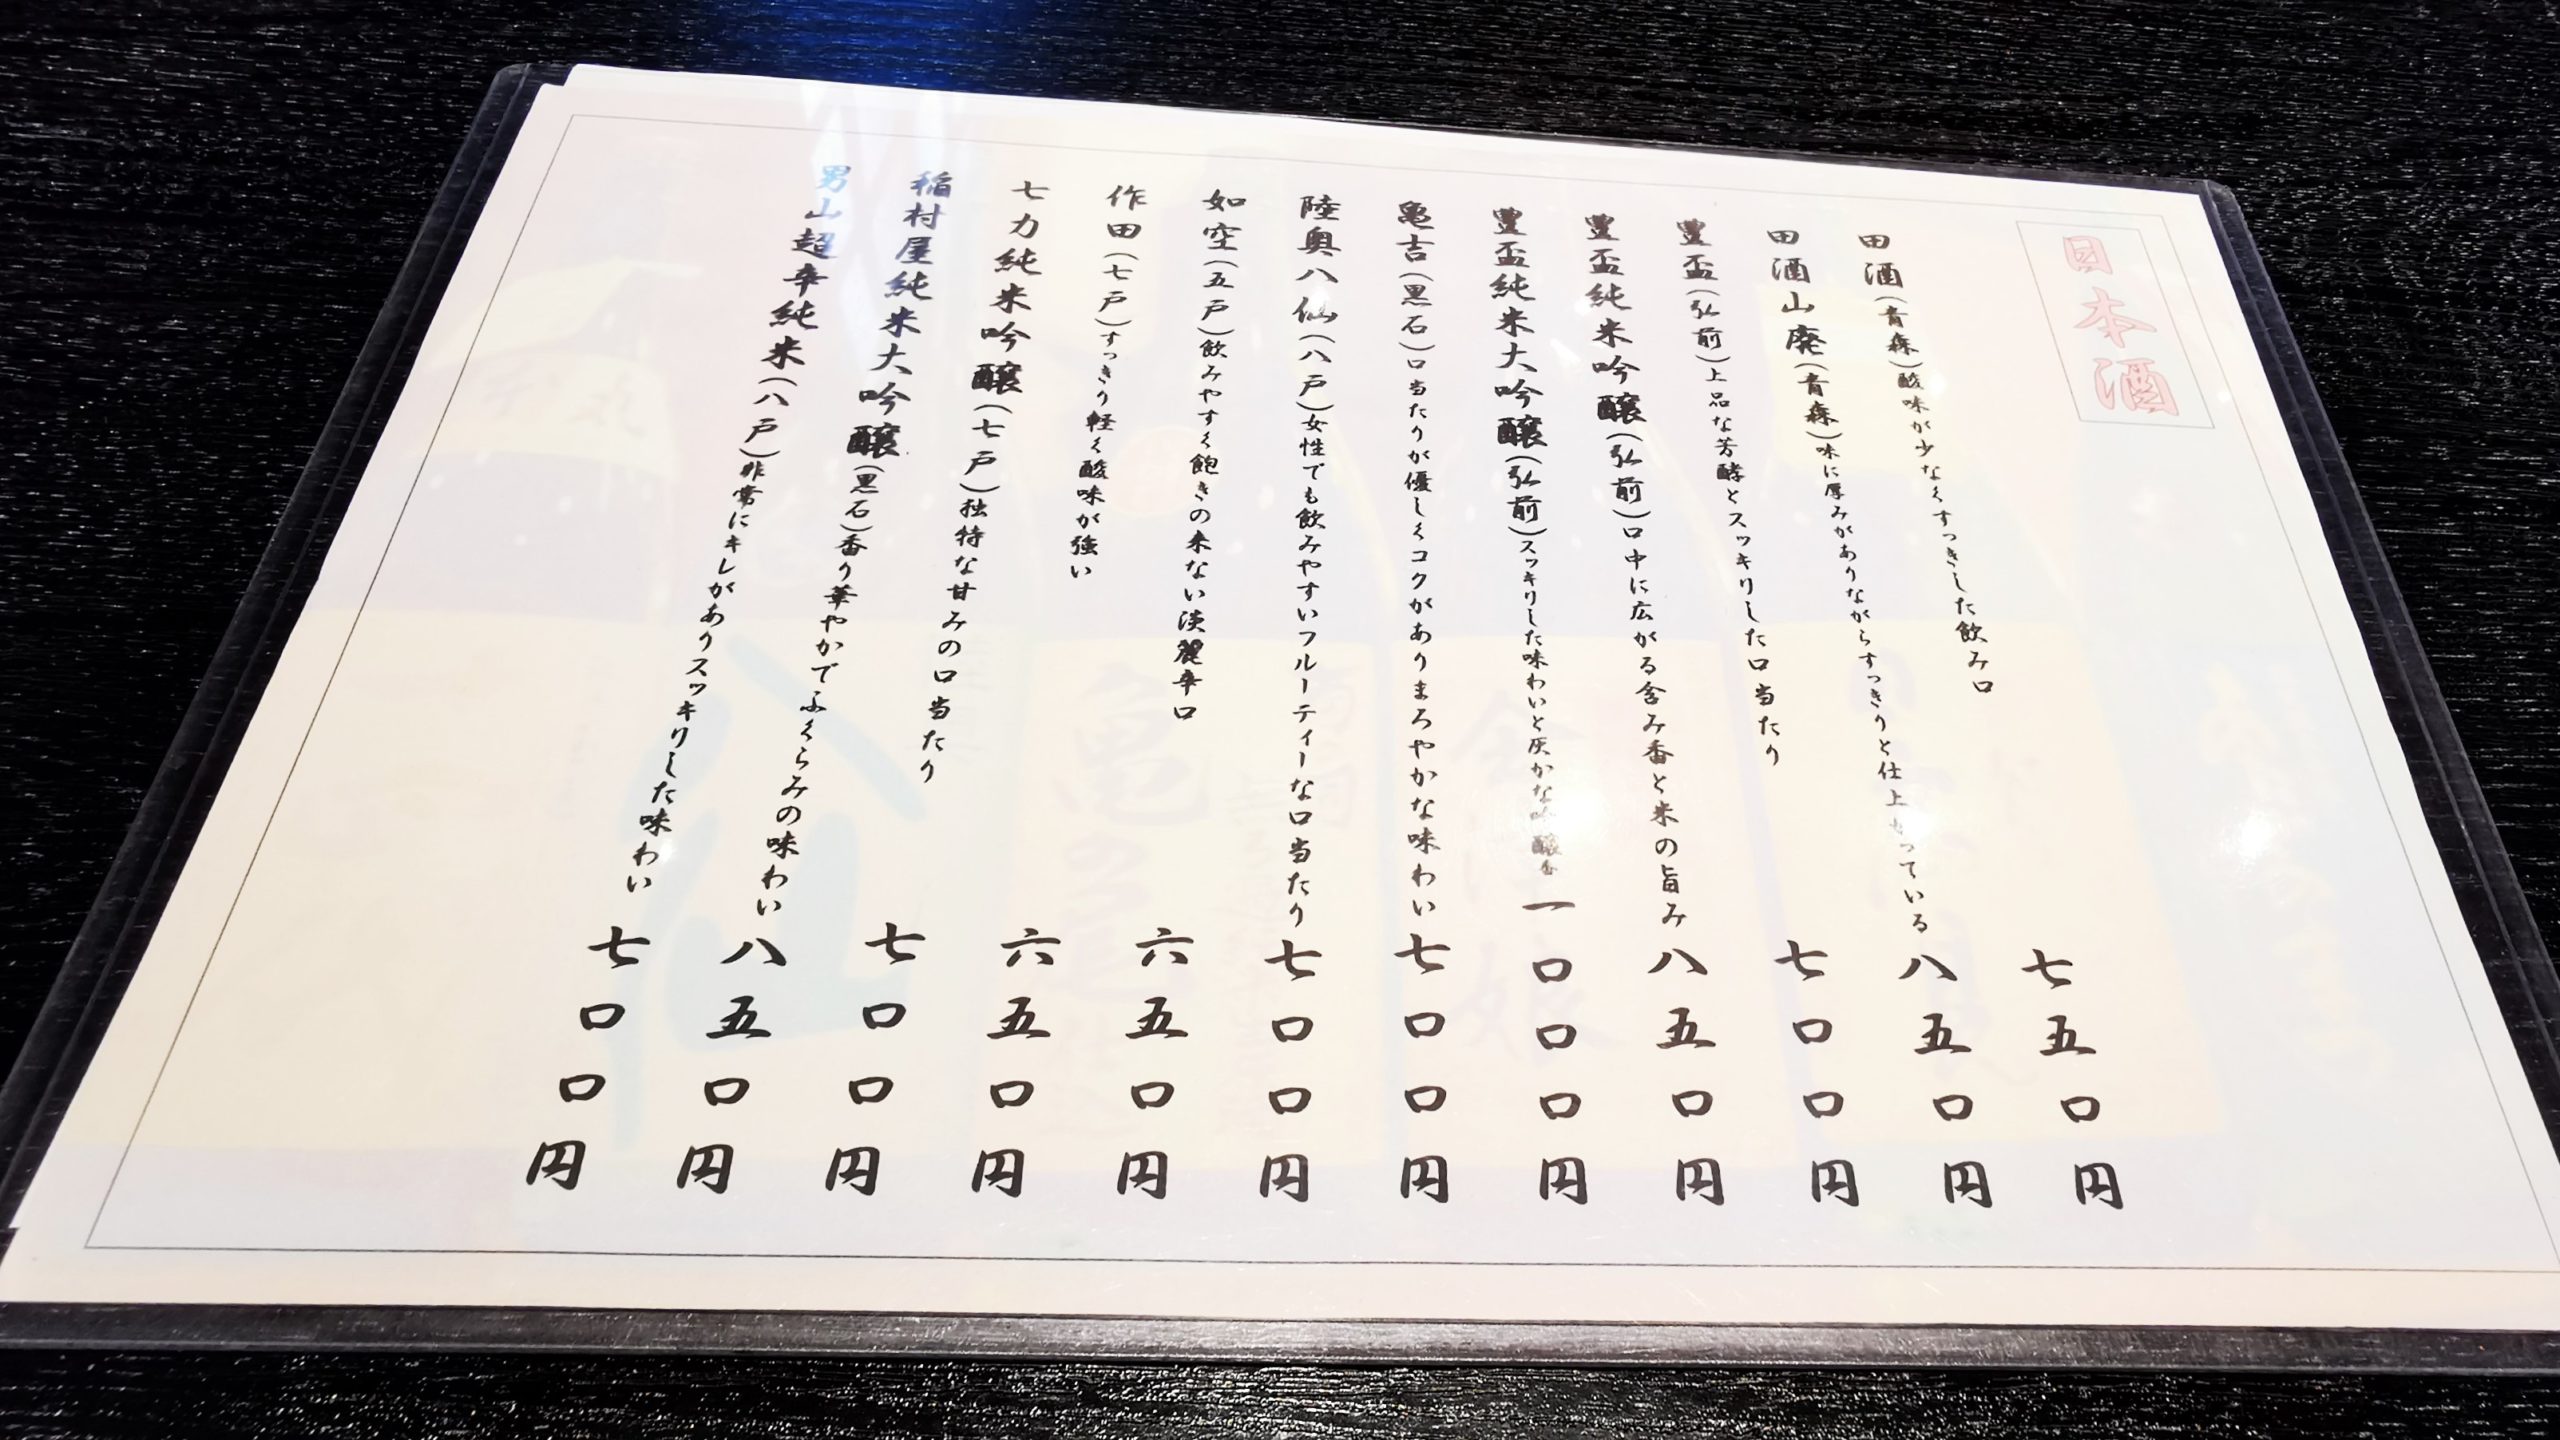 日本酒
田酒(青森)酸味が少なくすっきした飲み口 七五〇円
田酒山廃(青森)味に厚みがありながらすっきりと仕上がっている 八五〇円
豊盃(弘前)上品な芳酵とスッキリした口当たり 七〇〇円
豊盃純米吟醸(弘前)口中に広がる含み香と米の旨み 八五〇円
豊盃純米大吟醸(弘前)スッキリした味わいと灰かな吟醸香 一〇〇〇円
亀吉(黒石)口当たりが優しくコクがありまろやかな味わい 七〇〇円
陸奥八仙(八戸)女性でも飲みやすいフルーティーな口当たり 七〇〇円
如空(五戸)飲みやすく飽きの来ない淡麗辛口 六五〇円
作田(七戸)すっきり軽く酸味が強い 六五〇円
七力純米吟醸(七戸)独特な甘みの口当たり 七〇〇円
稲村屋純米大吟醸(黒石)香り華やかでふくらみの味わい 八五〇円
男山超辛純米(八戸)非常にキレがありスッキリした味わい 七〇〇円